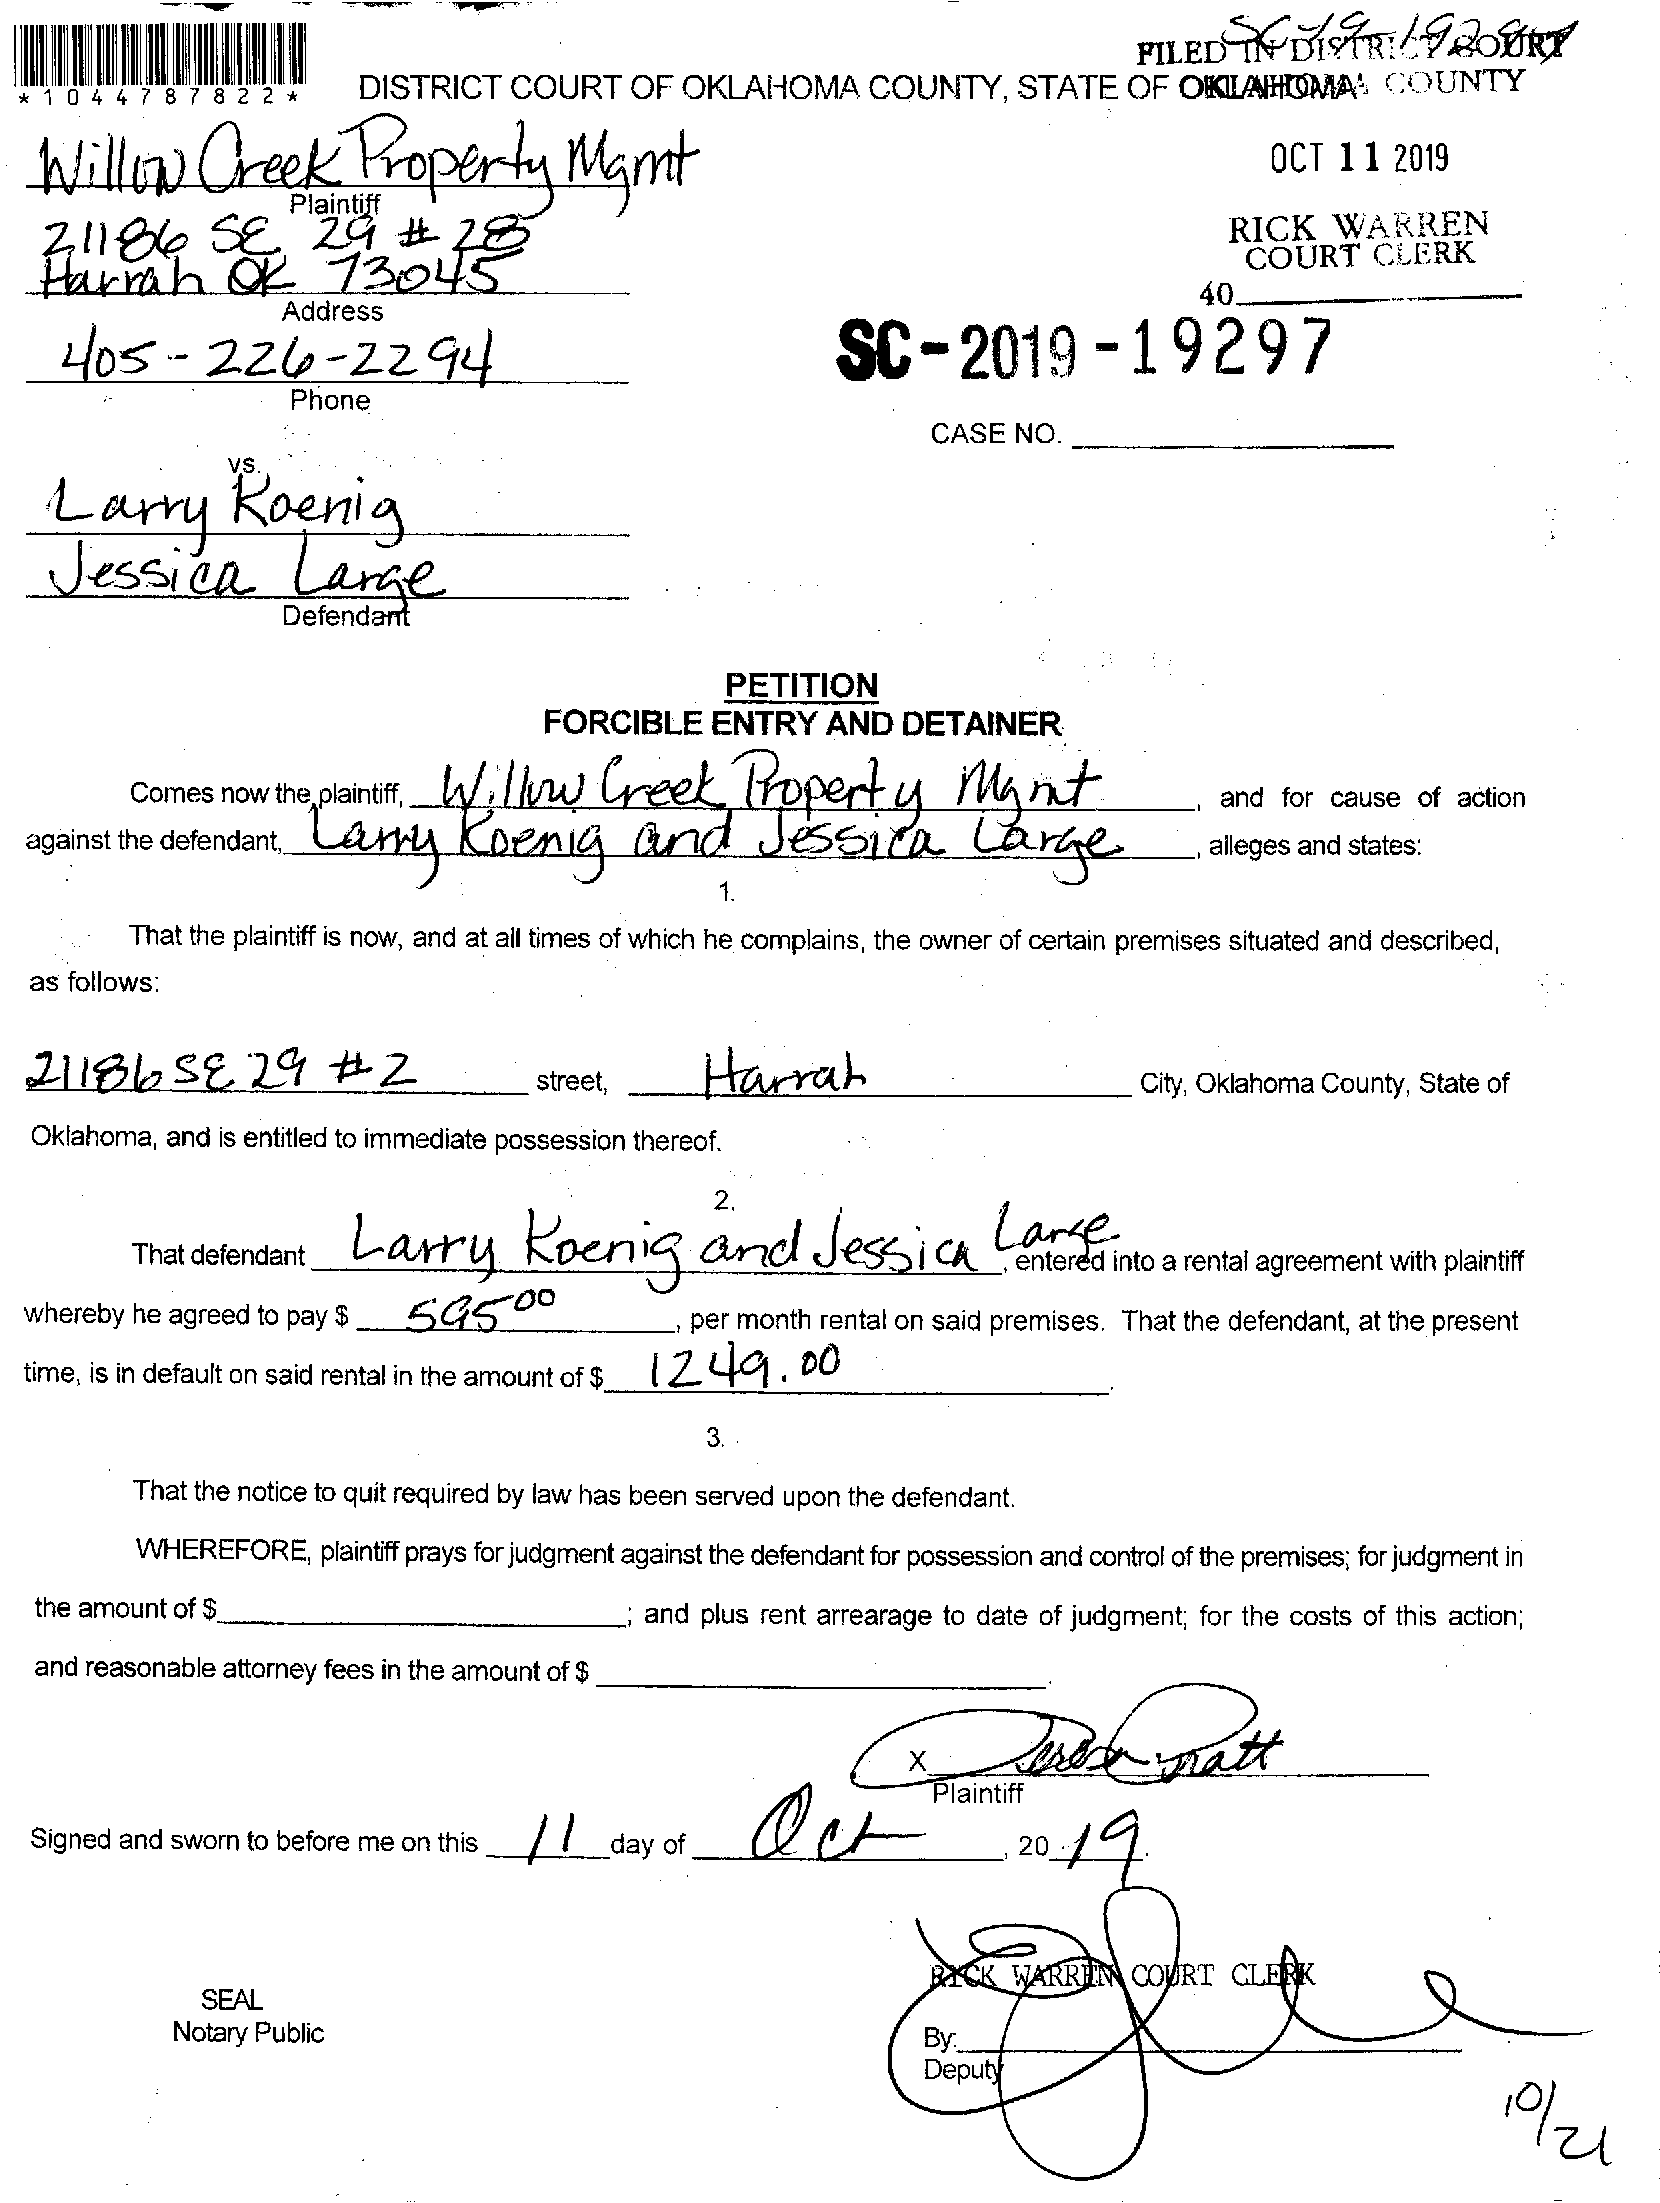 SC-19-19297
FILED IN DISTRICT COURT
*1044787822*
DISTRICT COURT OF OKLAHOMA COUNTY, STATE OF OKLAHOMA COUNTY
Willow Creek Property Mgmt
OCT 11 2019
Plaintiff
21186 SE 29 # 28
RICK WARREN
COURT CLERK
Harrah OK 73045
40
Address
SC-2019-19297
405-226-2294
Phone
CASE NO.
vs.
Larry Koenig
Jessica Large
Defendant
PETITION
FORCIBLE ENTRY AND DETAINER
Comes now the plaintiff, Willow Creek Property Mgmt, and for cause of action
against the defendant, Larry Koenig and Jessica Large, alleges and states:
1.
That the plaintiff is now, and at all times of which he complains, the owner of certain premises situated and described,
as follows:
21186 SE 29 #2 street, Harrah City, Oklahoma County, State of
Oklahoma, and is entitled to immediate possession thereof.
2.
That defendant Larry Koenig and Jessica Large, entered into a rental agreement with plaintiff
whereby he agreed to pay $ 595 00, per month rental on said premises. That the defendant, at the present
time, is in default on said rental in the amount of $ 1249.00.
3.
That the notice to quit required by law has been served upon the defendant.
WHEREFORE, plaintiff prays for judgment against the defendant for possession and control of the premises; for judgment in
the amount of $; and plus rent arrearage to date of judgment; for the costs of this action;
and reasonable attorney fees in the amount of $.
X Pratt
Plaintiff
Signed and sworn to before me on this 11 day of Oct, 20 19.
RICK WARREN COURT CLERK
SEAL
Notary Public
By:
Deputy
10/21